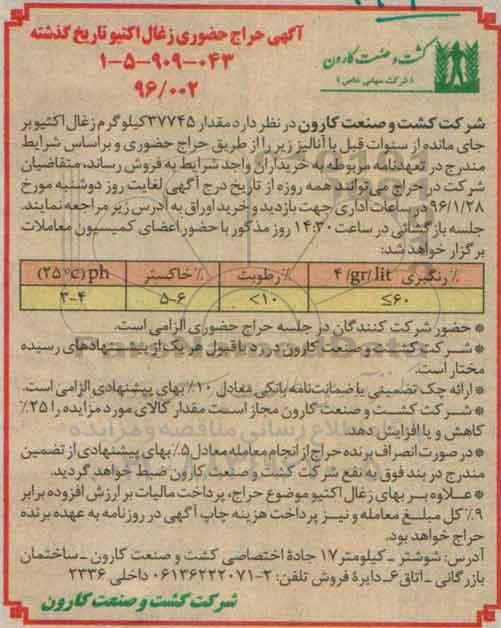 آگهی حراج حضوری زغال اکتیو تاریخ گذشته
۱-۵-۹۰۹-۰۴۳
۹۶/۰۰۲
کشت و صنعت کارون
(شرکت سهامی خاص)
شرکت کشت و صنعت کارون در نظر دارد مقدار ۳۷۷۴۵ کیلوگرم زغال اکتیو بر
جای مانده از سنوات قبل با آنالیز زیر را از طریق حراج حضوری و براساس شرایط
مندرج در تعهدنامه مربوطه به خریداران واجد شرایط به فروش رساند، متقاضیان
شرکت در حراج می‌توانند همه روزه از تاریخ درج آگهی لغایت روز دوشنبه مورخ
۹۶/۱/۲۸ در ساعات اداری جهت بازدید و خرید اوراق به آدرس زیر مراجعه نمایند.
جلسه بازگشائی در ساعت ۱۴:۳۰ روز مذکور با حضور اعضای کمیسیون معاملات
برگزار خواهد شد:
٪رنگبری ۴ /gr/lit ٪رطوبت ٪خاکستر (۲۵°c) ph
≤۶۰ <۱۰ ۵-۶ ۳-۴
* حضور شرکت کنندگان در جلسه حراج حضوری الزامی است.
* شرکت کشت و صنعت کارون در رد یا قبول هر یک از پیشنهادهای رسیده
مختار است.
* ارائه چک تضمینی یا ضمانت‌نامه بانکی معادل ۱۰٪ بهای پیشنهادی الزامی است.
* شرکت کشت و صنعت کارون مجاز است مقدار کالای مورد مزایده را ۲۵٪
کاهش و یا افزایش دهد.
* در صورت انصراف برنده حراج از انجام معامله معادل ۵٪ بهای پیشنهادی از تضمین
مندرج در بند فوق به نفع شرکت کشت و صنعت کارون ضبط خواهد گردید.
* علاوه بر بهای زغال اکتیو موضوع حراج، پرداخت مالیات بر ارزش افزوده برابر
۹٪ کل مبلغ معامله و نیز پرداخت هزینه چاپ آگهی در روزنامه به عهده برنده
حراج خواهد بود.
آدرس: شوشتر ـ کیلومتر ۱۷ جادهٔ اختصاصی کشت و صنعت کارون ـ ساختمان
بازرگانی ـ اتاق ۶ـ دایرهٔ فروش تلفن: ۲-۰۶۱۳۶۲۲۲۰۷۱ داخلی ۲۳۳۶
شرکت کشت و صنعت کارون